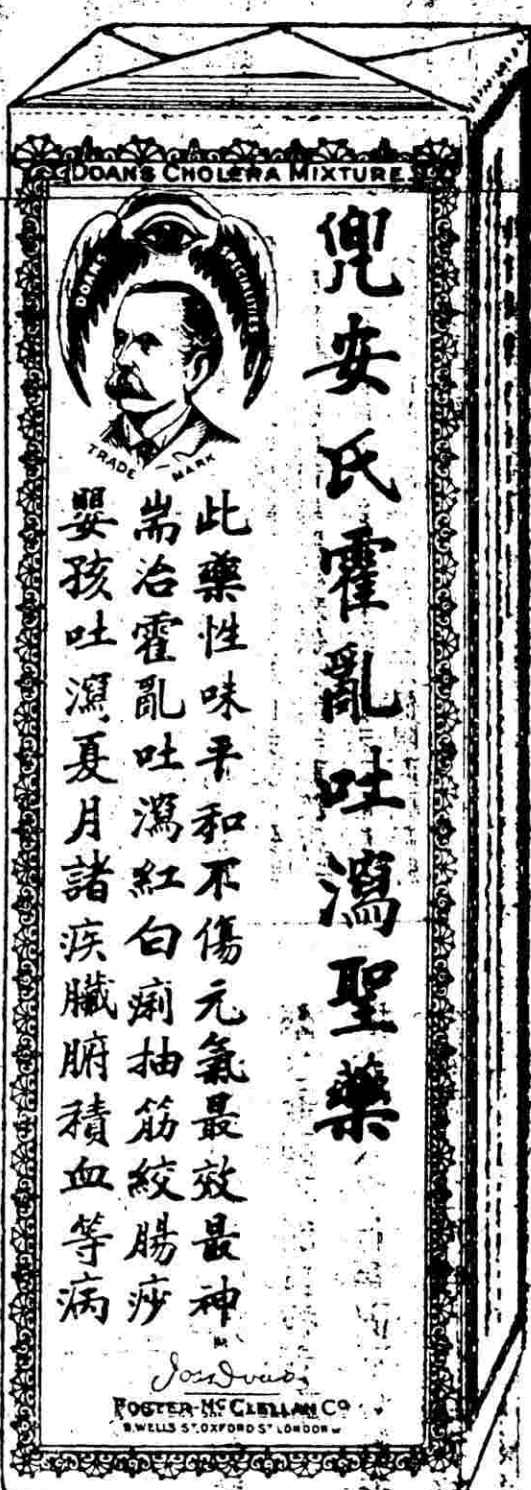 DOANS CHOLERA MIXTURE
DOANS SPECIALITIES
TRADE MARK
兜安氏霍亂吐瀉聖藥
此藥性味平和不傷元氣最效最神
耑治霍亂吐瀉紅白痢抽筋絞腸痧
嬰孩吐瀉夏月諸疾臟腑積血等病
FOSTER-MCCLELLAN CO
8, WELLS ST, OXFORD ST LONDON W